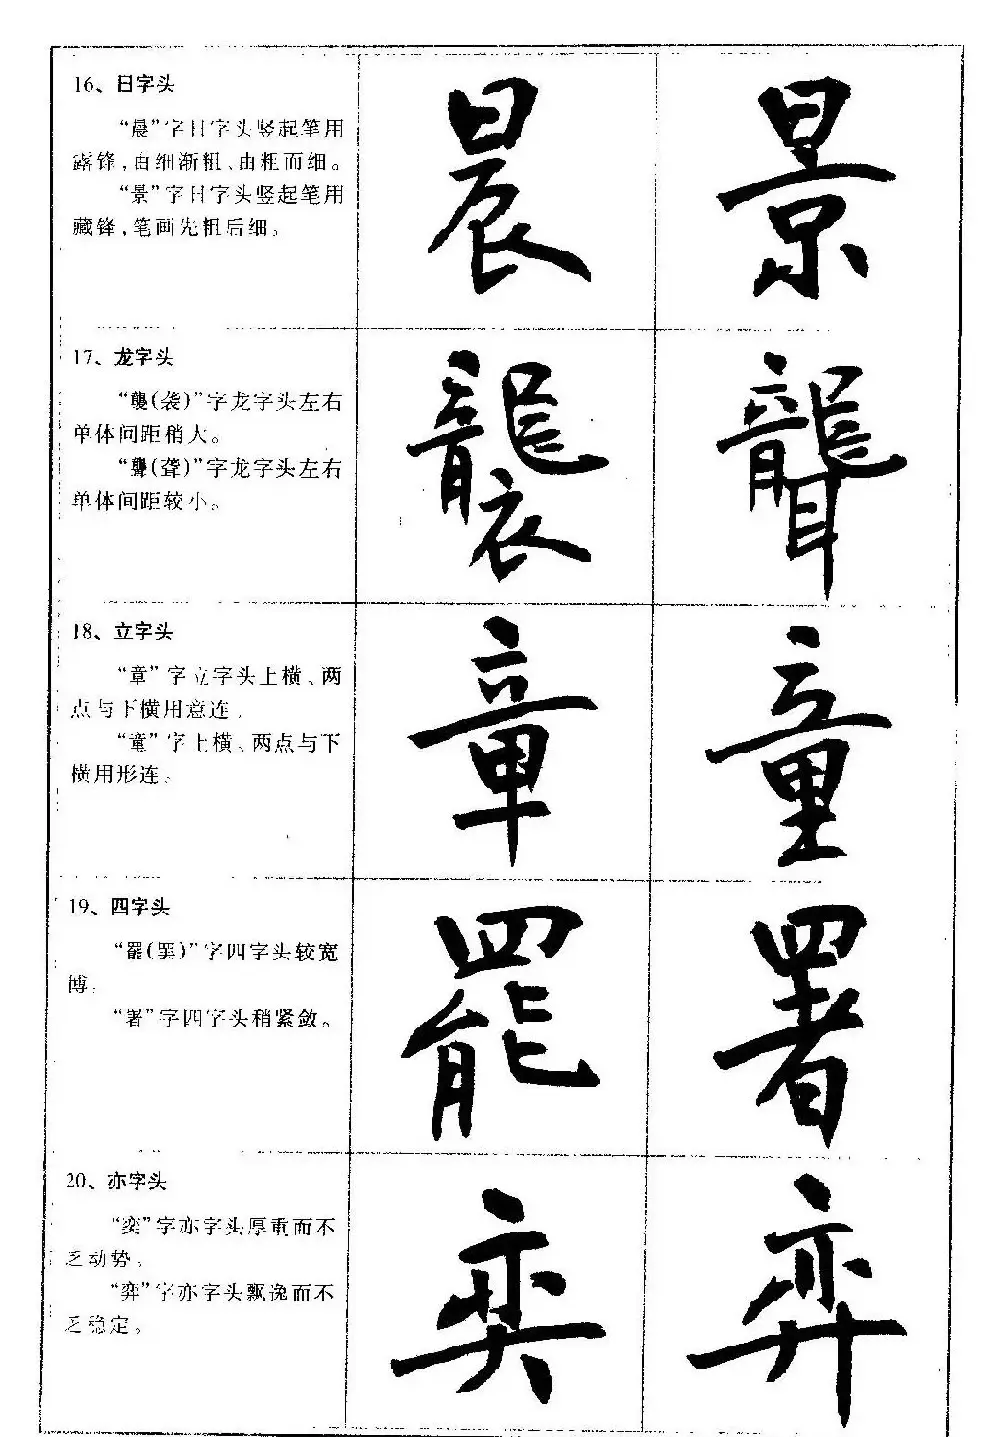 16、日字头
“晨”字日字头竖起笔用
露锋，由细渐粗、由粗而细。
“景”字日字头竖起笔用
藏锋，笔画先粗后细。
晨 景
17、龙字头
“襲(袭)”字龙字头左右
单体间距稍大。
“聾(聋)”字龙字头左右
单体间距较小。
襲 聾
18、立字头
“章”字立字头上横、两
点与下横用意连。
“童”字上横、两点与下
横用形连。
章 童
19、四字头
“罷(罢)”字四字头较宽
博。
“署”字四字头稍紧敛。
罷 署
20、亦字头
“奕”字亦字头厚重而不
乏动势。
“弈”字亦字头飘逸而不
乏稳定。
奕 弈